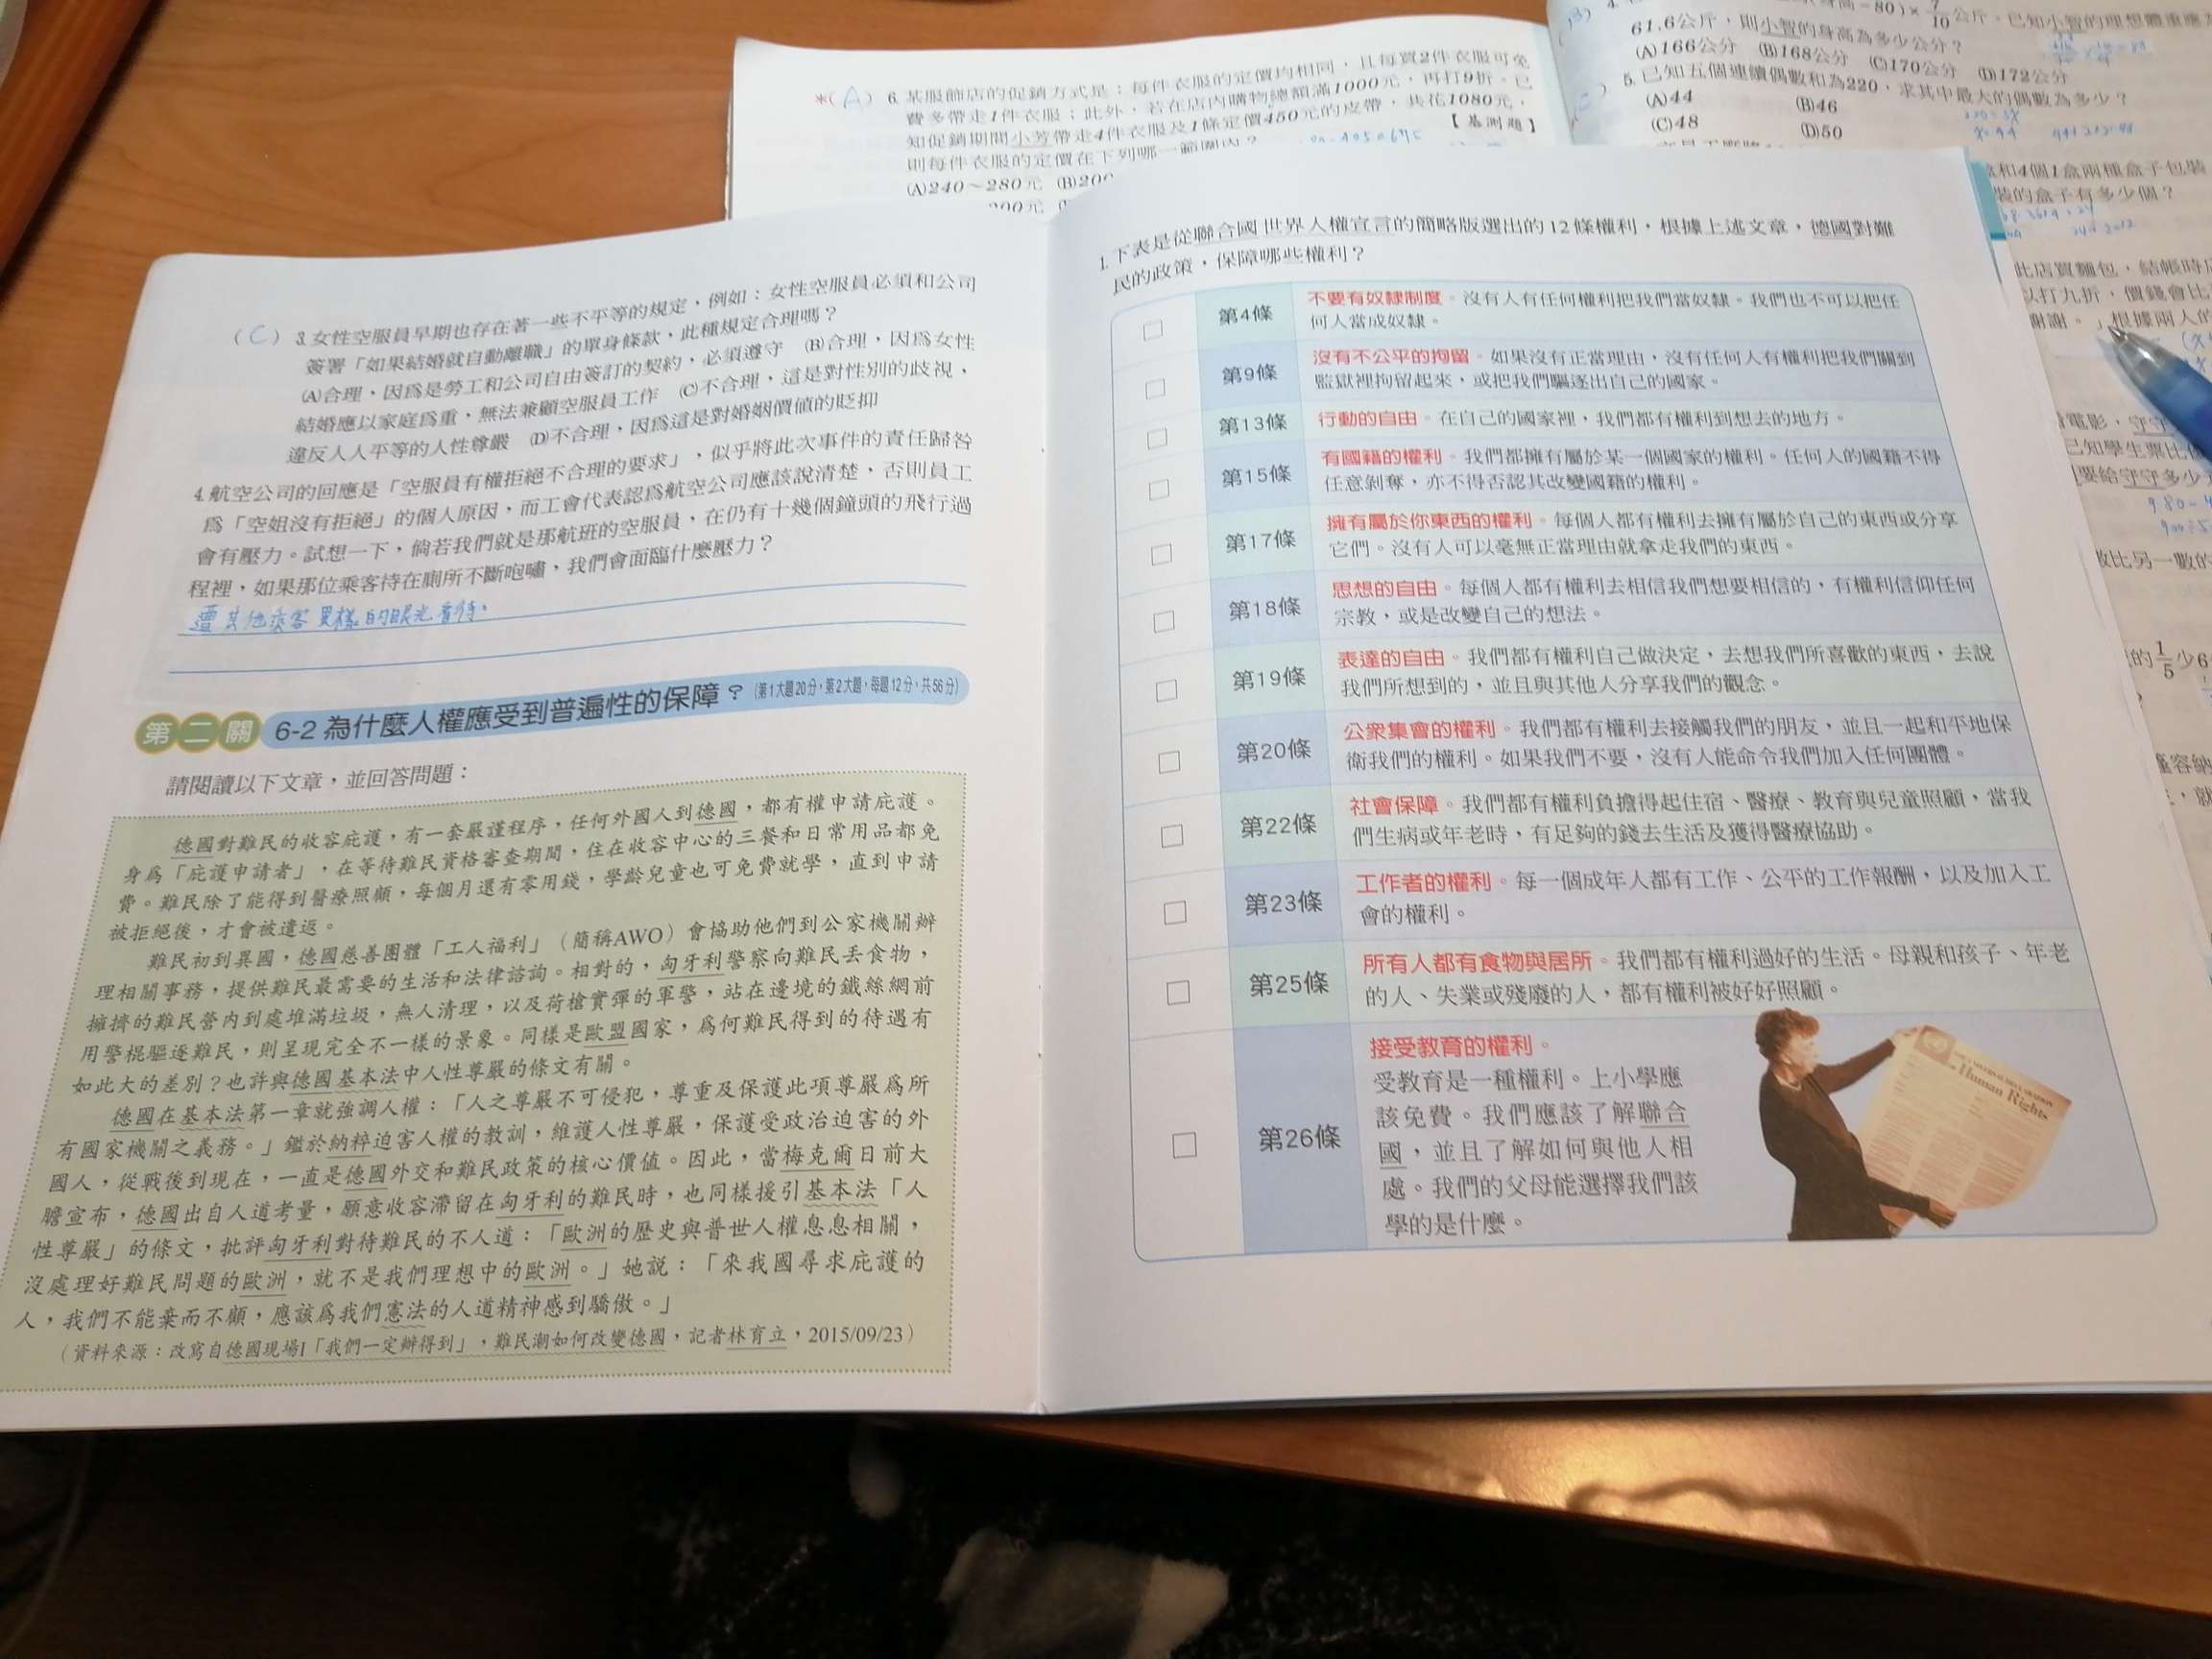 *(A) 6. 某服飾店的促銷方式是：每件衣服的定價均相同，且每買2件衣服可免
費多帶走1件衣服；此外，若在店內購物總額滿1000元，再打9折。已
知促銷期間小芳帶走4件衣服及1條定價450元的皮帶，共花1080元，
則每件衣服的定價在下列哪一範圍內？
【基測題】
(A)240～280元 (B)200
61.6公斤，則小智的身高為多少公分？
(A)166公分 (B)168公分 (C)170公分 (D)172公分
5. 已知五個連續偶數和為220，求其中最大的偶數為多少？
(A)44 (B)46
(C)48 (D)50
盒和4個1盒兩種盒子包裝
裝的盒子有多少個？
此店買麵包，結帳時店
以打九折，價錢會比
謝謝。」根據兩人的
(C) 3. 女性空服員早期也存在著一些不平等的規定，例如：女性空服員必須和公司
簽署「如果結婚就自動離職」的單身條款，此種規定合理嗎？
(A)合理，因為是勞工和公司自由簽訂的契約，必須遵守 (B)合理，因為女性
結婚應以家庭為重，無法兼顧空服員工作 (C)不合理，這是對性別的歧視，
違反人人平等的人性尊嚴 (D)不合理，因為這是對婚姻價值的貶抑
4. 航空公司的回應是「空服員有權拒絕不合理的要求」，似乎將此次事件的責任歸咎
為「空姐沒有拒絕」的個人原因，而工會代表認為航空公司應該說清楚，否則員工
會有壓力。試想一下，倘若我們就是那航班的空服員，在仍有十幾個鐘頭的飛行過
程裡，如果那位乘客待在廁所不斷咆嘯，我們會面臨什麼壓力？
遭其他乘客異樣的眼光看待。
第二關 6-2 為什麼人權應受到普遍性的保障？（第1大題20分，第2大題，每題12分，共56分）
請閱讀以下文章，並回答問題：
德國對難民的收容庇護，有一套嚴謹程序，任何外國人到德國，都有權申請庇護。
身為「庇護申請者」，在等待難民資格審查期間，住在收容中心的三餐和日常用品都免
費。難民除了能得到醫療照顧，每個月還有零用錢，學齡兒童也可免費就學，直到申請
被拒絕後，才會被遣返。
難民初到異國，德國慈善團體「工人福利」（簡稱AWO）會協助他們到公家機關辦
理相關事務，提供難民最需要的生活和法律諮詢。相對的，匈牙利警察向難民丟食物，
擁擠的難民營內到處堆滿垃圾，無人清理，以及荷槍實彈的軍警，站在邊境的鐵絲網前
用警棍驅逐難民，則呈現完全不一樣的景象。同樣是歐盟國家，為何難民得到的待遇有
如此大的差別？也許與德國基本法中人性尊嚴的條文有關。
德國在基本法第一章就強調人權：「人之尊嚴不可侵犯，尊重及保護此項尊嚴為所
有國家機關之義務。」鑑於納粹迫害人權的教訓，維護人性尊嚴，保護受政治迫害的外
國人，從戰後到現在，一直是德國外交和難民政策的核心價值。因此，當梅克爾日前大
膽宣布，德國出自人道考量，願意收容滯留在匈牙利的難民時，也同樣援引基本法「人
性尊嚴」的條文，批評匈牙利對待難民的不人道：「歐洲的歷史與普世人權息息相關，
沒處理好難民問題的歐洲，就不是我們理想中的歐洲。」她說：「來我國尋求庇護的
人，我們不能棄而不顧，應該為我們憲法的人道精神感到驕傲。」
（資料來源：改寫自德國現場I「我們一定辦得到」，難民潮如何改變德國，記者林育立，2015/09/23）
1. 下表是從聯合國世界人權宣言的簡略版選出的12條權利，根據上述文章，德國對難
民的政策，保障哪些權利？
□ 第4條 不要有奴隸制度。沒有人有任何權利把我們當奴隸。我們也不可以把任
何人當成奴隸。
□ 第9條 沒有不公平的拘留。如果沒有正當理由，沒有任何人有權利把我們關到
監獄裡拘留起來，或把我們驅逐出自己的國家。
□ 第13條 行動的自由。在自己的國家裡，我們都有權利到想去的地方。
□ 第15條 有國籍的權利。我們都擁有屬於某一個國家的權利。任何人的國籍不得
任意剝奪，亦不得否認其改變國籍的權利。
□ 第17條 擁有屬於你東西的權利。每個人都有權利去擁有屬於自己的東西或分享
它們。沒有人可以毫無正當理由就拿走我們的東西。
□ 第18條 思想的自由。每個人都有權利去相信我們想要相信的，有權利信仰任何
宗教，或是改變自己的想法。
□ 第19條 表達的自由。我們都有權利自己做決定，去想我們所喜歡的東西，去說
我們所想到的，並且與其他人分享我們的觀念。
□ 第20條 公眾集會的權利。我們都有權利去接觸我們的朋友，並且一起和平地保
衛我們的權利。如果我們不要，沒有人能命令我們加入任何團體。
□ 第22條 社會保障。我們都有權利負擔得起住宿、醫療、教育與兒童照顧，當我
們生病或年老時，有足夠的錢去生活及獲得醫療協助。
□ 第23條 工作者的權利。每一個成年人都有工作、公平的工作報酬，以及加入工
會的權利。
□ 第25條 所有人都有食物與居所。我們都有權利過好的生活。母親和孩子、年老
的人、失業或殘廢的人，都有權利被好好照顧。
□ 第26條 接受教育的權利。
受教育是一種權利。上小學應
該免費。我們應該了解聯合
國，並且了解如何與他人相
處。我們的父母能選擇我們該
學的是什麼。
Human Rights